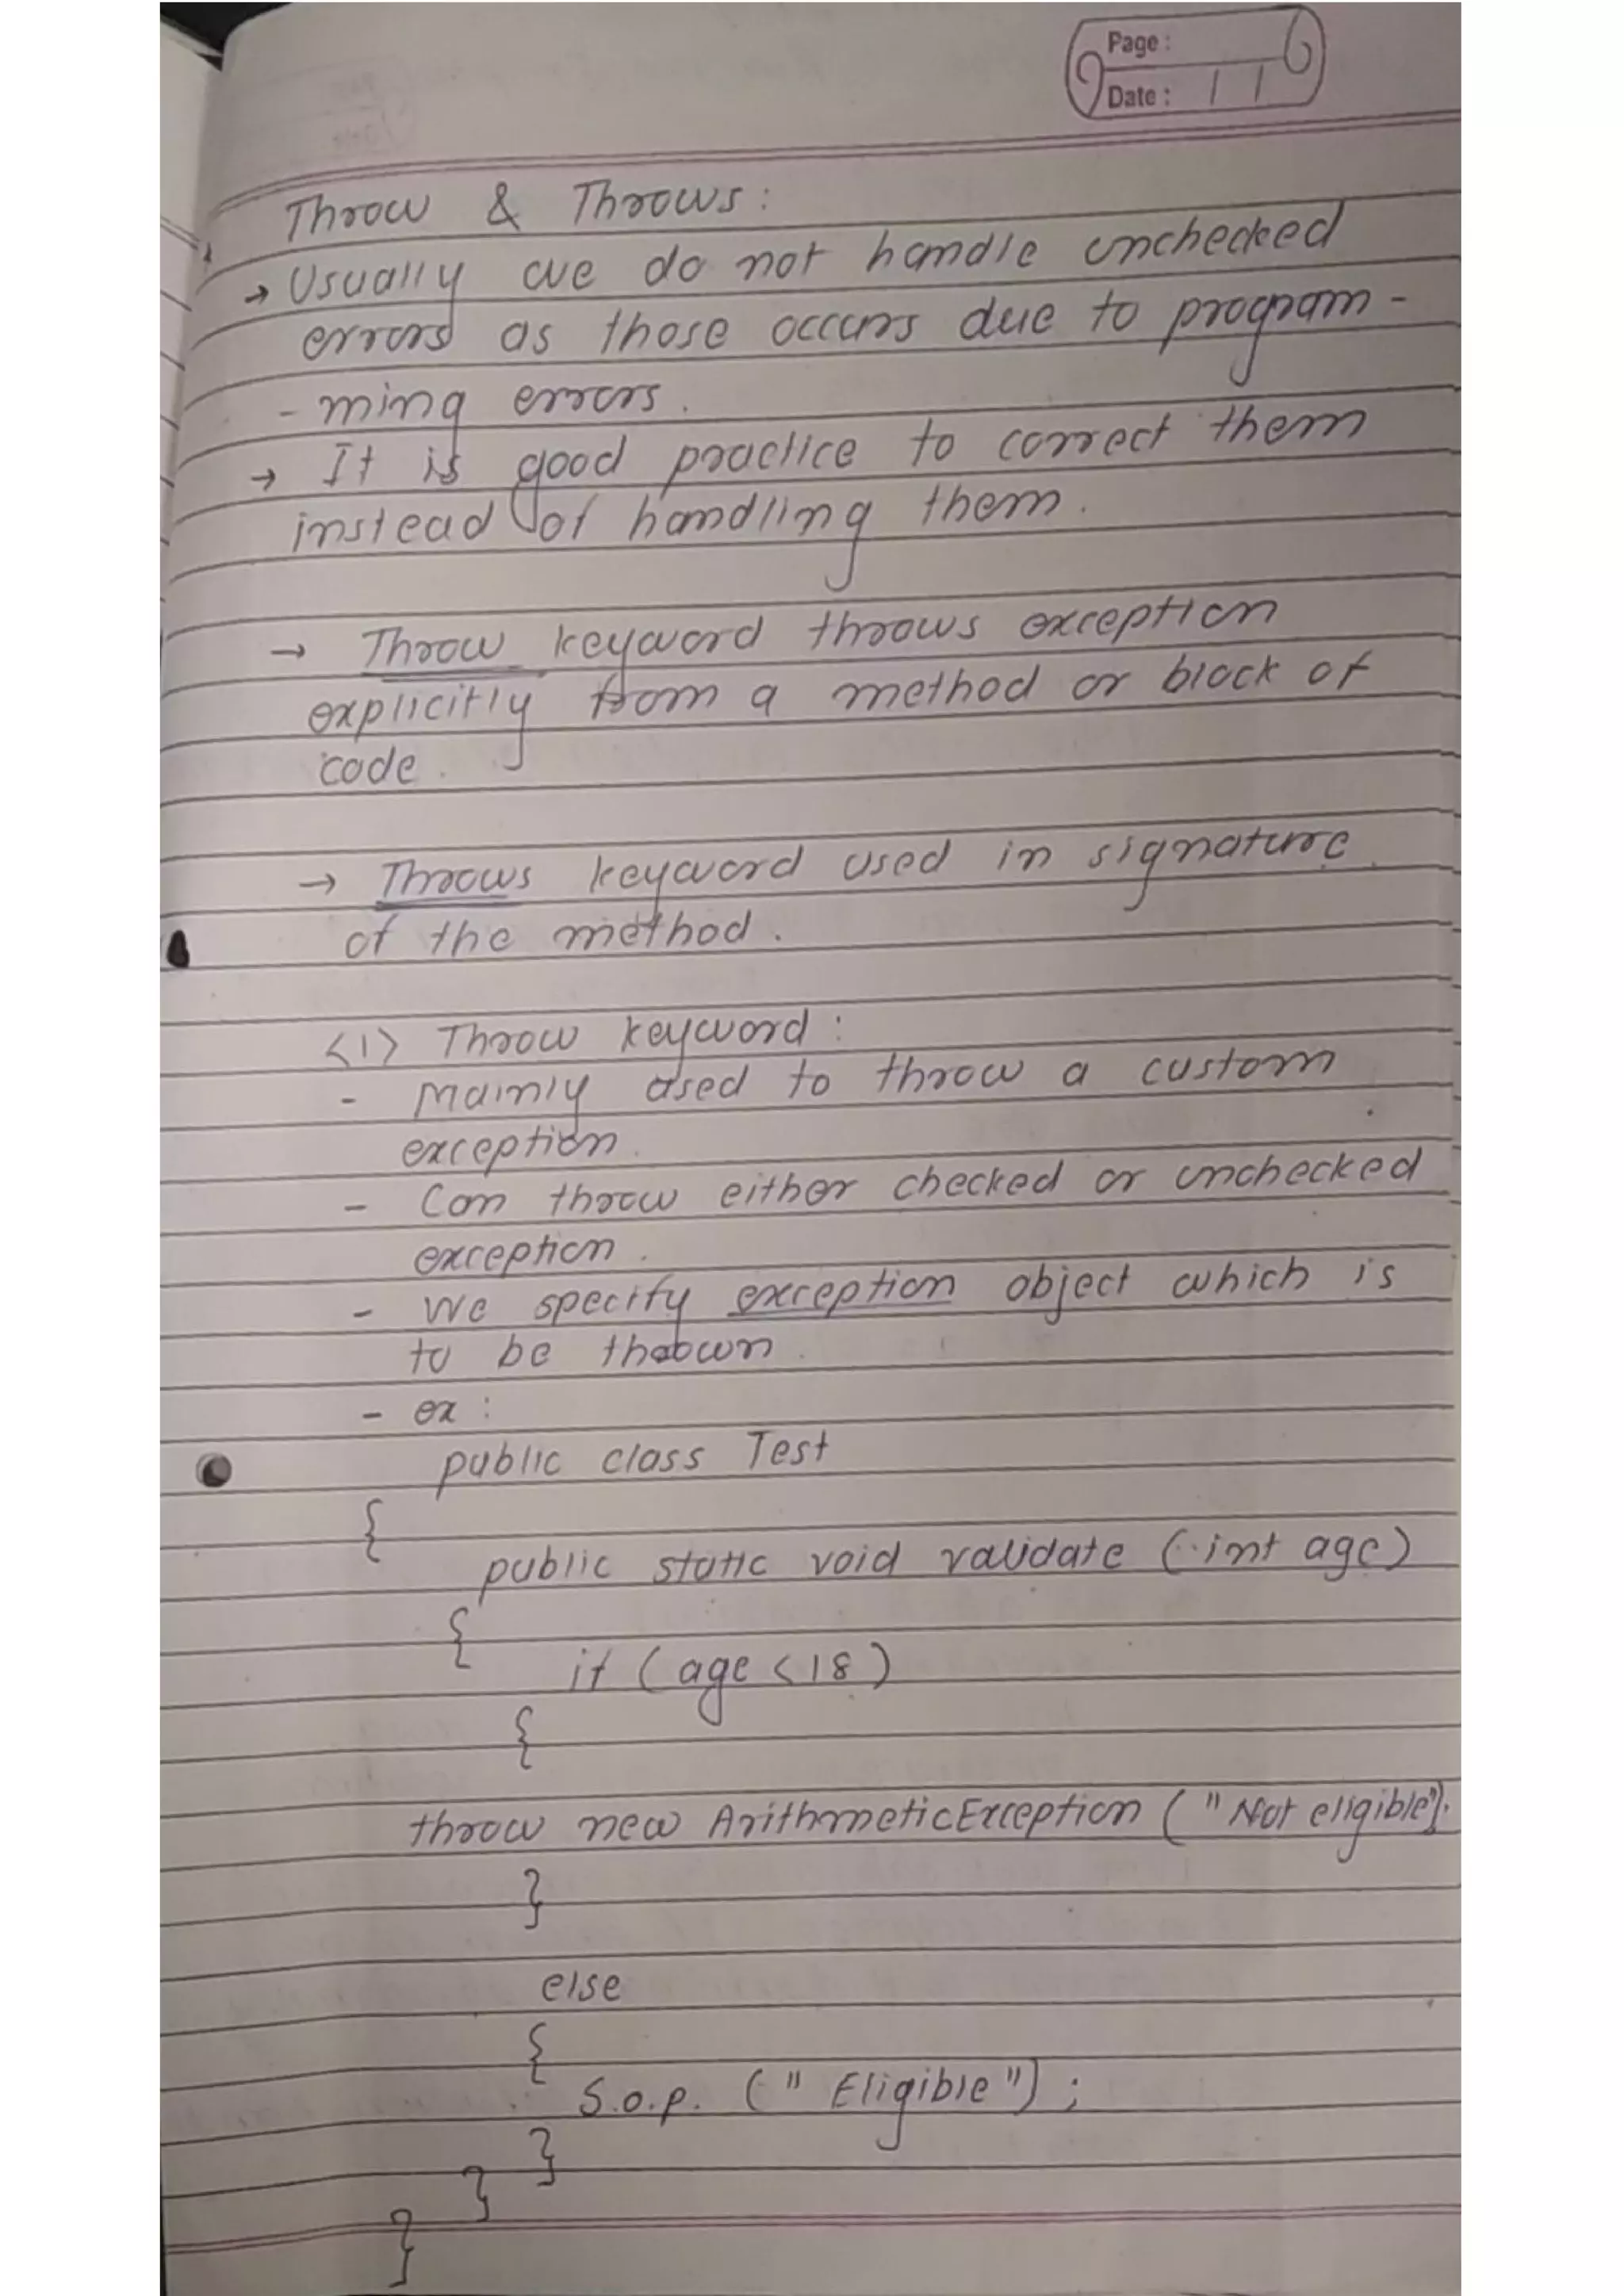 Page :
Date : / /
Throw & Throws :
→ Usually we do not handle unchecked
errors as those occurs due to program -
- ming errors.
→ It is good practice to correct them
instead of handling them.
→ Throw keyword throws exception
explicitly from a method or block of
code.
→ Throws keyword used in signature
of the method.
<1> Throw keyword :
- Mainly used to throw a custom
exception.
- Can throw either checked or unchecked
exception.
- We specify exception object which is
to be thrown.
- ex :
public class Test
{
public static void validate (int age)
{
if (age < 18)
{
throw new ArithmeticException ( " Not eligible");
}
else
{
S.o.p. ( " Eligible " ) ;
}
}
}